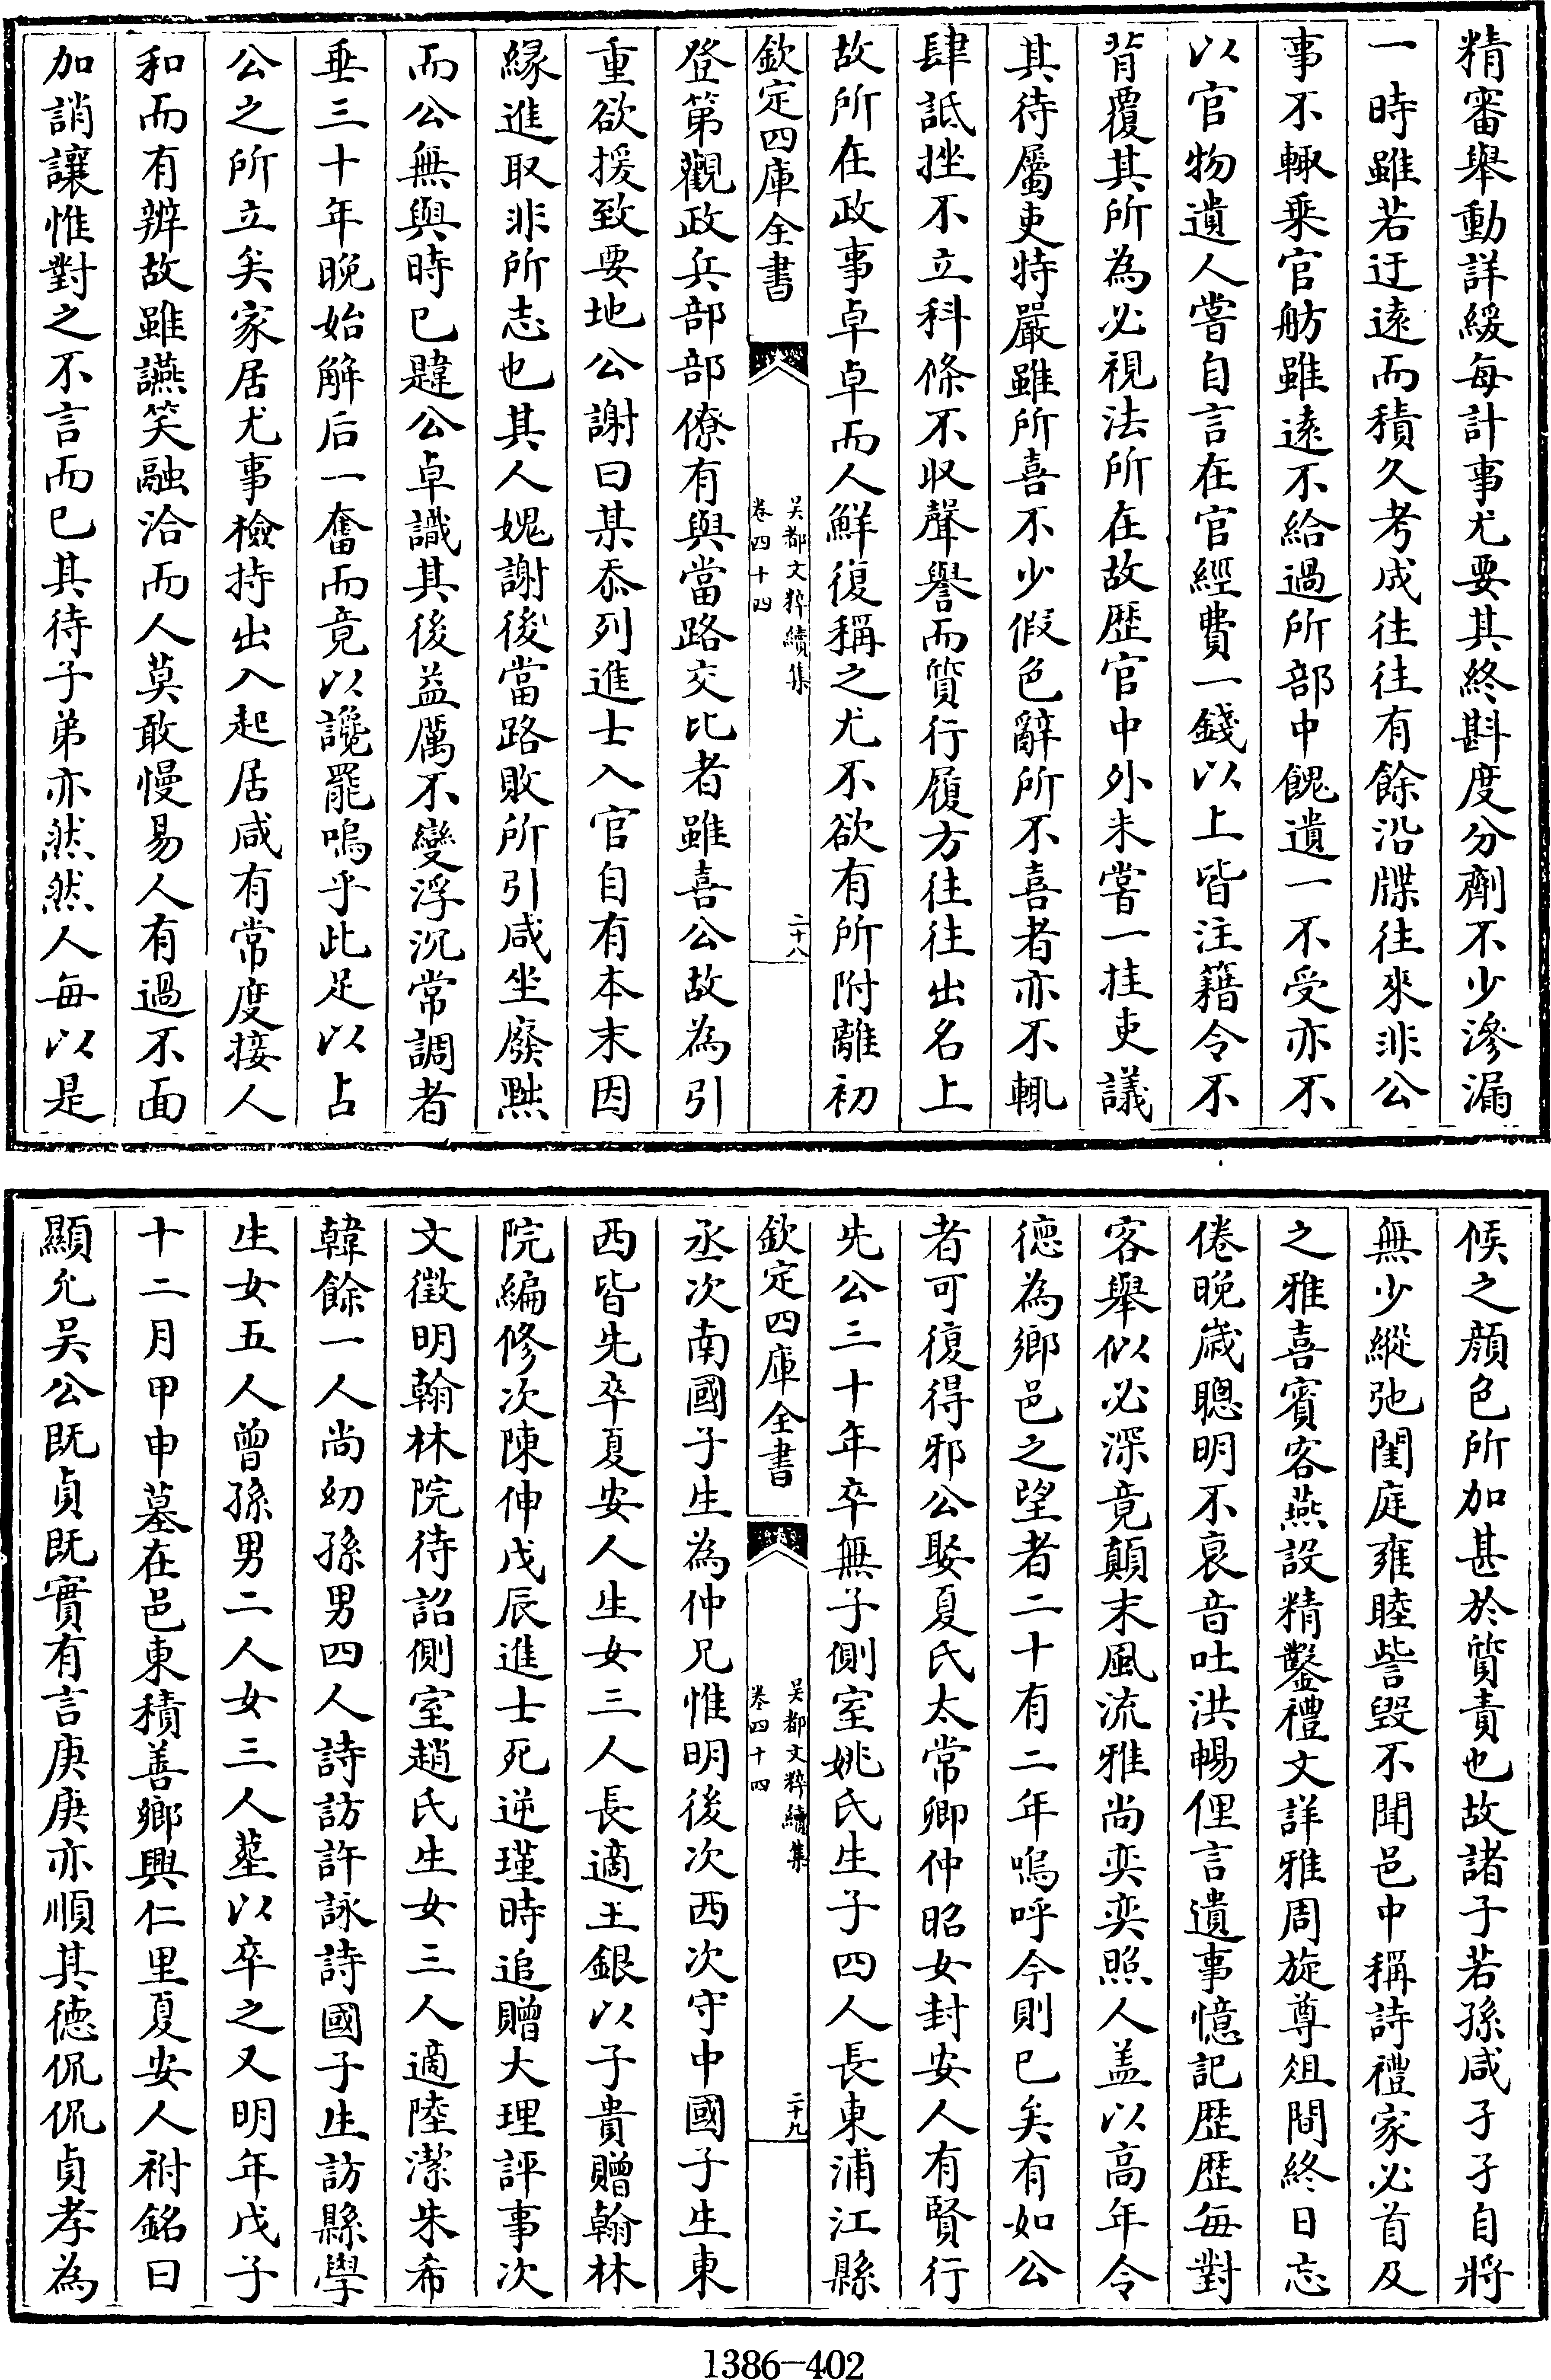 精審舉動詳緩每計事尤要其終斟度分劑不少滲漏
一時雖若迂遠而積久考成往往有餘沿牒往來非公
事不輒乗官舫雖逺不給過所部中餽遺一不受亦不
以官物遺人嘗自言在官經費一錢以上皆注籍令不
背覆其所為必視法所在故歴官中外未嘗一挂吏議
其待屬吏特嚴雖所喜不少假色辭所不喜者亦不輒
肆詆挫不立科條不收聲譽而質行履方往往出名上
故所在政事卓卓而人鮮復稱之尤不欲有所附離初
欽定四庫全書
吴都文粹續集
卷四十四
二十八
登第觀政兵部部僚有與當路交比者雖喜公故為引
重欲援致要地公謝曰某忝列進士入官自有本末因
縁進取非所志也其人媿謝後當路敗所引咸坐廢黜
而公無與時已韙公卓識其後益厲不變浮沉常調者
垂三十年晚始解后一奮而竟以讒罷嗚乎此足以占
公之所立矣家居尤事檢持出入起居咸有常度接人
和而有辨故雖讌笑融洽而人莫敢慢易人有過不面
加誚讓惟對之不言而已其待子弟亦然然人每以是
候之顔色所加甚於質責也故諸子若孫咸孑孑自將
無少縱弛閨庭雍睦訾毁不聞邑中稱詩禮家必首及
之雅喜賓客燕設精鑿禮文詳雅周旋尊俎間終日忘
倦晚歲聰明不衰音吐洪暢俚言遺事憶記歴歴每對
客舉似必深竟顛末風流雅尚奕奕照人盖以高年令
徳為鄉邑之望者二十有二年嗚呼今則已矣有如公
者可復得邪公娶夏氏太常卿仲昭女封安人有賢行
先公三十年卒無子側室姚氏生子四人長東浦江縣
欽定四庫全書
吴都文粹續集
卷四十四
二十九
丞次南國子生為仲兄惟明後次西次守中國子生東
西皆先卒夏安人生女三人長適王銀以子貴贈翰林
院編修次陳伸戊辰進士死逆瑾時追贈大理評事次
文徵明翰林院待詔側室趙氏生女三人適陸潔朱希
韓餘一人尚幼孫男四人詩訪許詠詩國子生訪縣學
生女五人曽孫男二人女三人塟以卒之又明年戊子
十二月甲申墓在邑東積善鄉興仁里夏安人祔銘曰
顯允吴公既貞既實有言庚庚亦順其徳侃侃貞孝為
1386-402